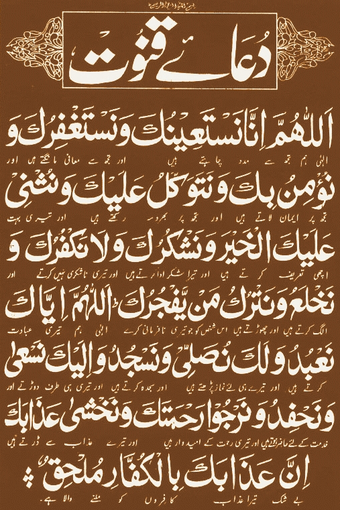 دُعَائے قنُوت
اَللّٰهُمَّ اِنَّا نَسْتَعِيْنُكَ وَنَسْتَغْفِرُكَ وَ
الٰہی ہم تجھ سے مدد چاہتے ہیں اور تجھ سے معافی مانگتے ہیں اور
نُؤْمِنُ بِكَ وَنَتَوَكَّلُ عَلَيْكَ وَنُثْنِىْ
تجھ پر ایمان لاتے ہیں اور تجھ پر بھروسہ رکھتے ہیں اور تیری بہت
عَلَيْكَ الْخَيْرَ وَنَشْكُرُكَ وَلَا نَكْفُرُكَ وَ
اچھی تعریف کرتے ہیں اور تیرا شکر ادا کرتے ہیں اور تیری ناشکری نہیں کرتے اور
نَخْلَعُ وَنَتْرُكُ مَنْ يَّفْجُرُكَ اَللّٰهُمَّ اِيَّاكَ
الگ کرتے ہیں اور چھوڑتے ہیں اس شخص کو جو تیری نافرمانی کرے الٰہی ہم تیری عبادت
نَعْبُدُ وَلَكَ نُصَلِّىْ وَنَسْجُدُ وَاِلَيْكَ نَسْعٰى
کرتے ہیں اور تیرے ہی لئے نماز پڑھتے ہیں اور سجدہ کرتے ہیں اور تیری ہی طرف دوڑتے اور
وَنَحْفِدُ وَنَرْجُوْا رَحْمَتَكَ وَنَخْشٰى عَذَابَكَ
خدمت کے لئے حاضر ہوتے ہیں اور تیری رحمت کے امیدوار ہیں اور تیرے عذاب سے ڈرتے ہیں
اِنَّ عَذَابَكَ بِالْكُفَّارِ مُلْحِقٌ
بے شک تیرا عذاب کافروں کو ملنے والا ہے۔